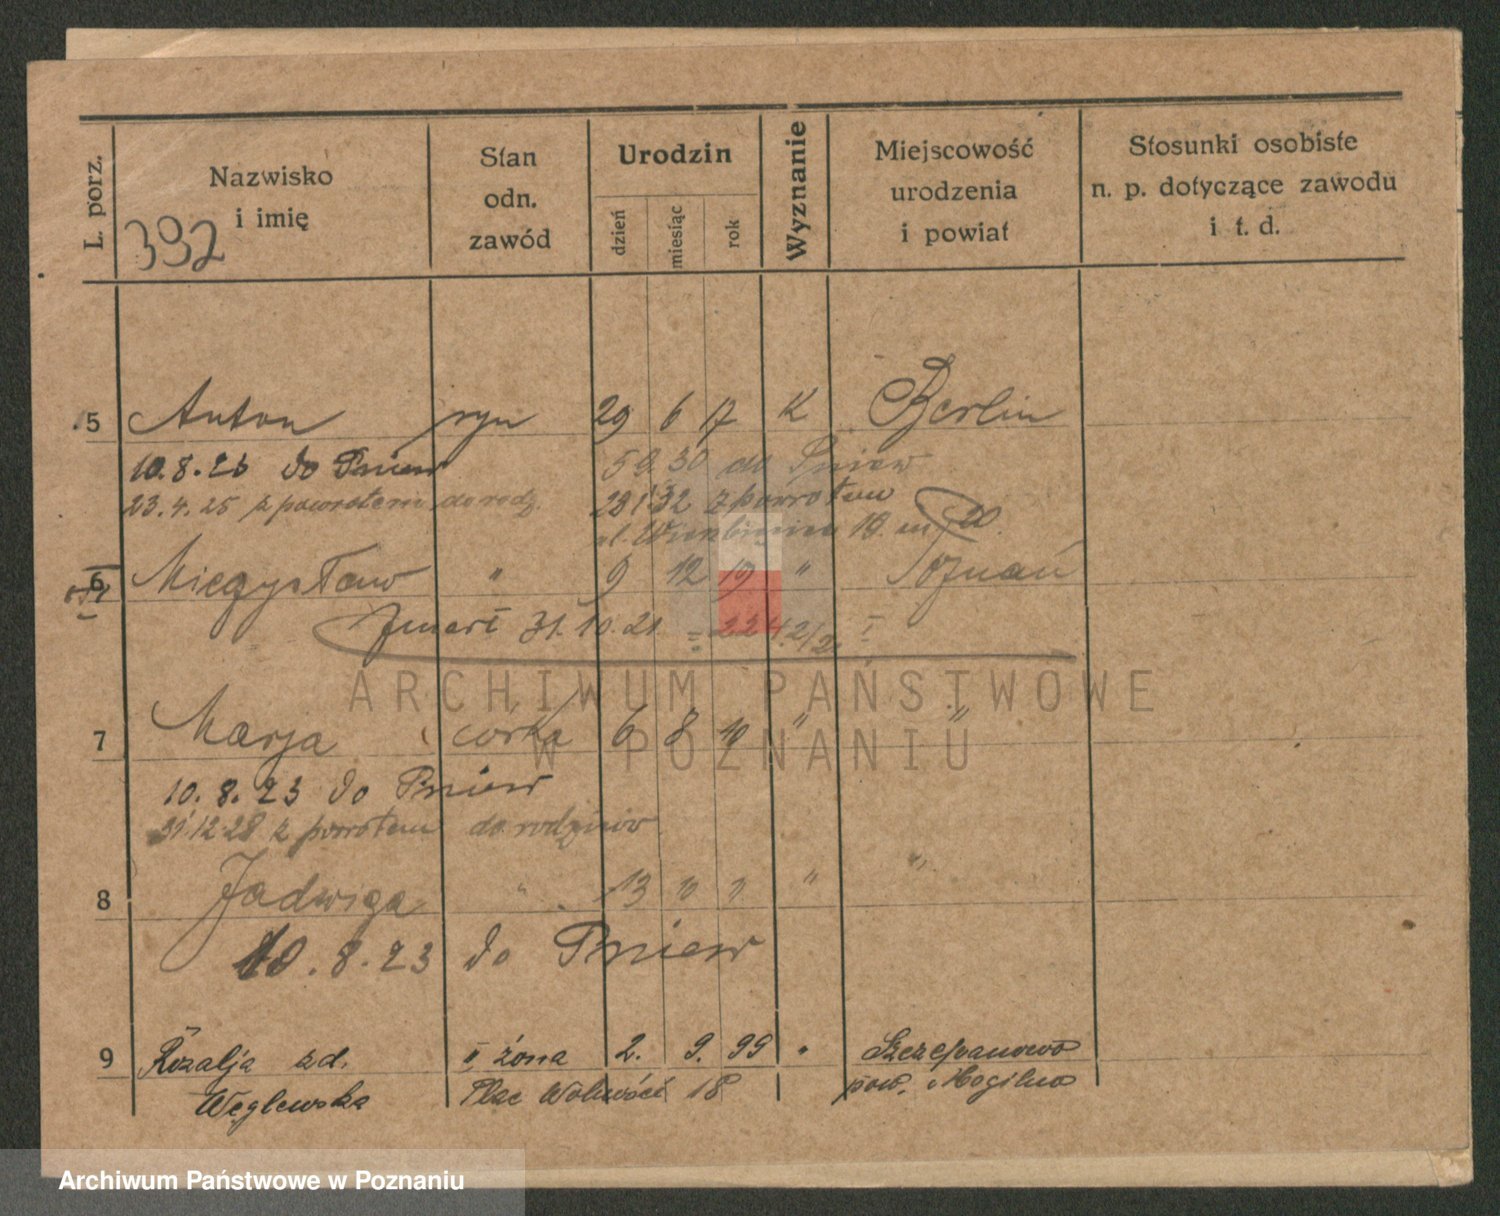 L. porz. Nazwisko i imię Stan odn. zawód Urodzin dzień miesiąc rok Wyznanie Miejscowość urodzenia i powiat Stosunki osobiste n. p. dotyczące zawodu i t. d.
392
5 Anton syn 29 6 17 K Berlin
10.8.23 do Pniew
23.4.25 z powrotem do rodz.
30 do Pniew
32 z powrotem
18 m 20.
6 Mieczysław " 9 12 19 " Poznań
Zmarł 31.10.21
7 Marja córka 6 8 " "
10.8.23 do Pniew
31.12.28 z powrotem do rodziców
8 Jadwiga " 13 " "
10.8.23 do Pniew
9 Rozalja zd. II żona 2. 9. 99 " Szczepanowo
Węglewska Plac Wolności 18 pow. Mogilno
ARCHIWUM PAŃSTWOWE
W POZNANIU
Archiwum Państwowe w Poznaniu